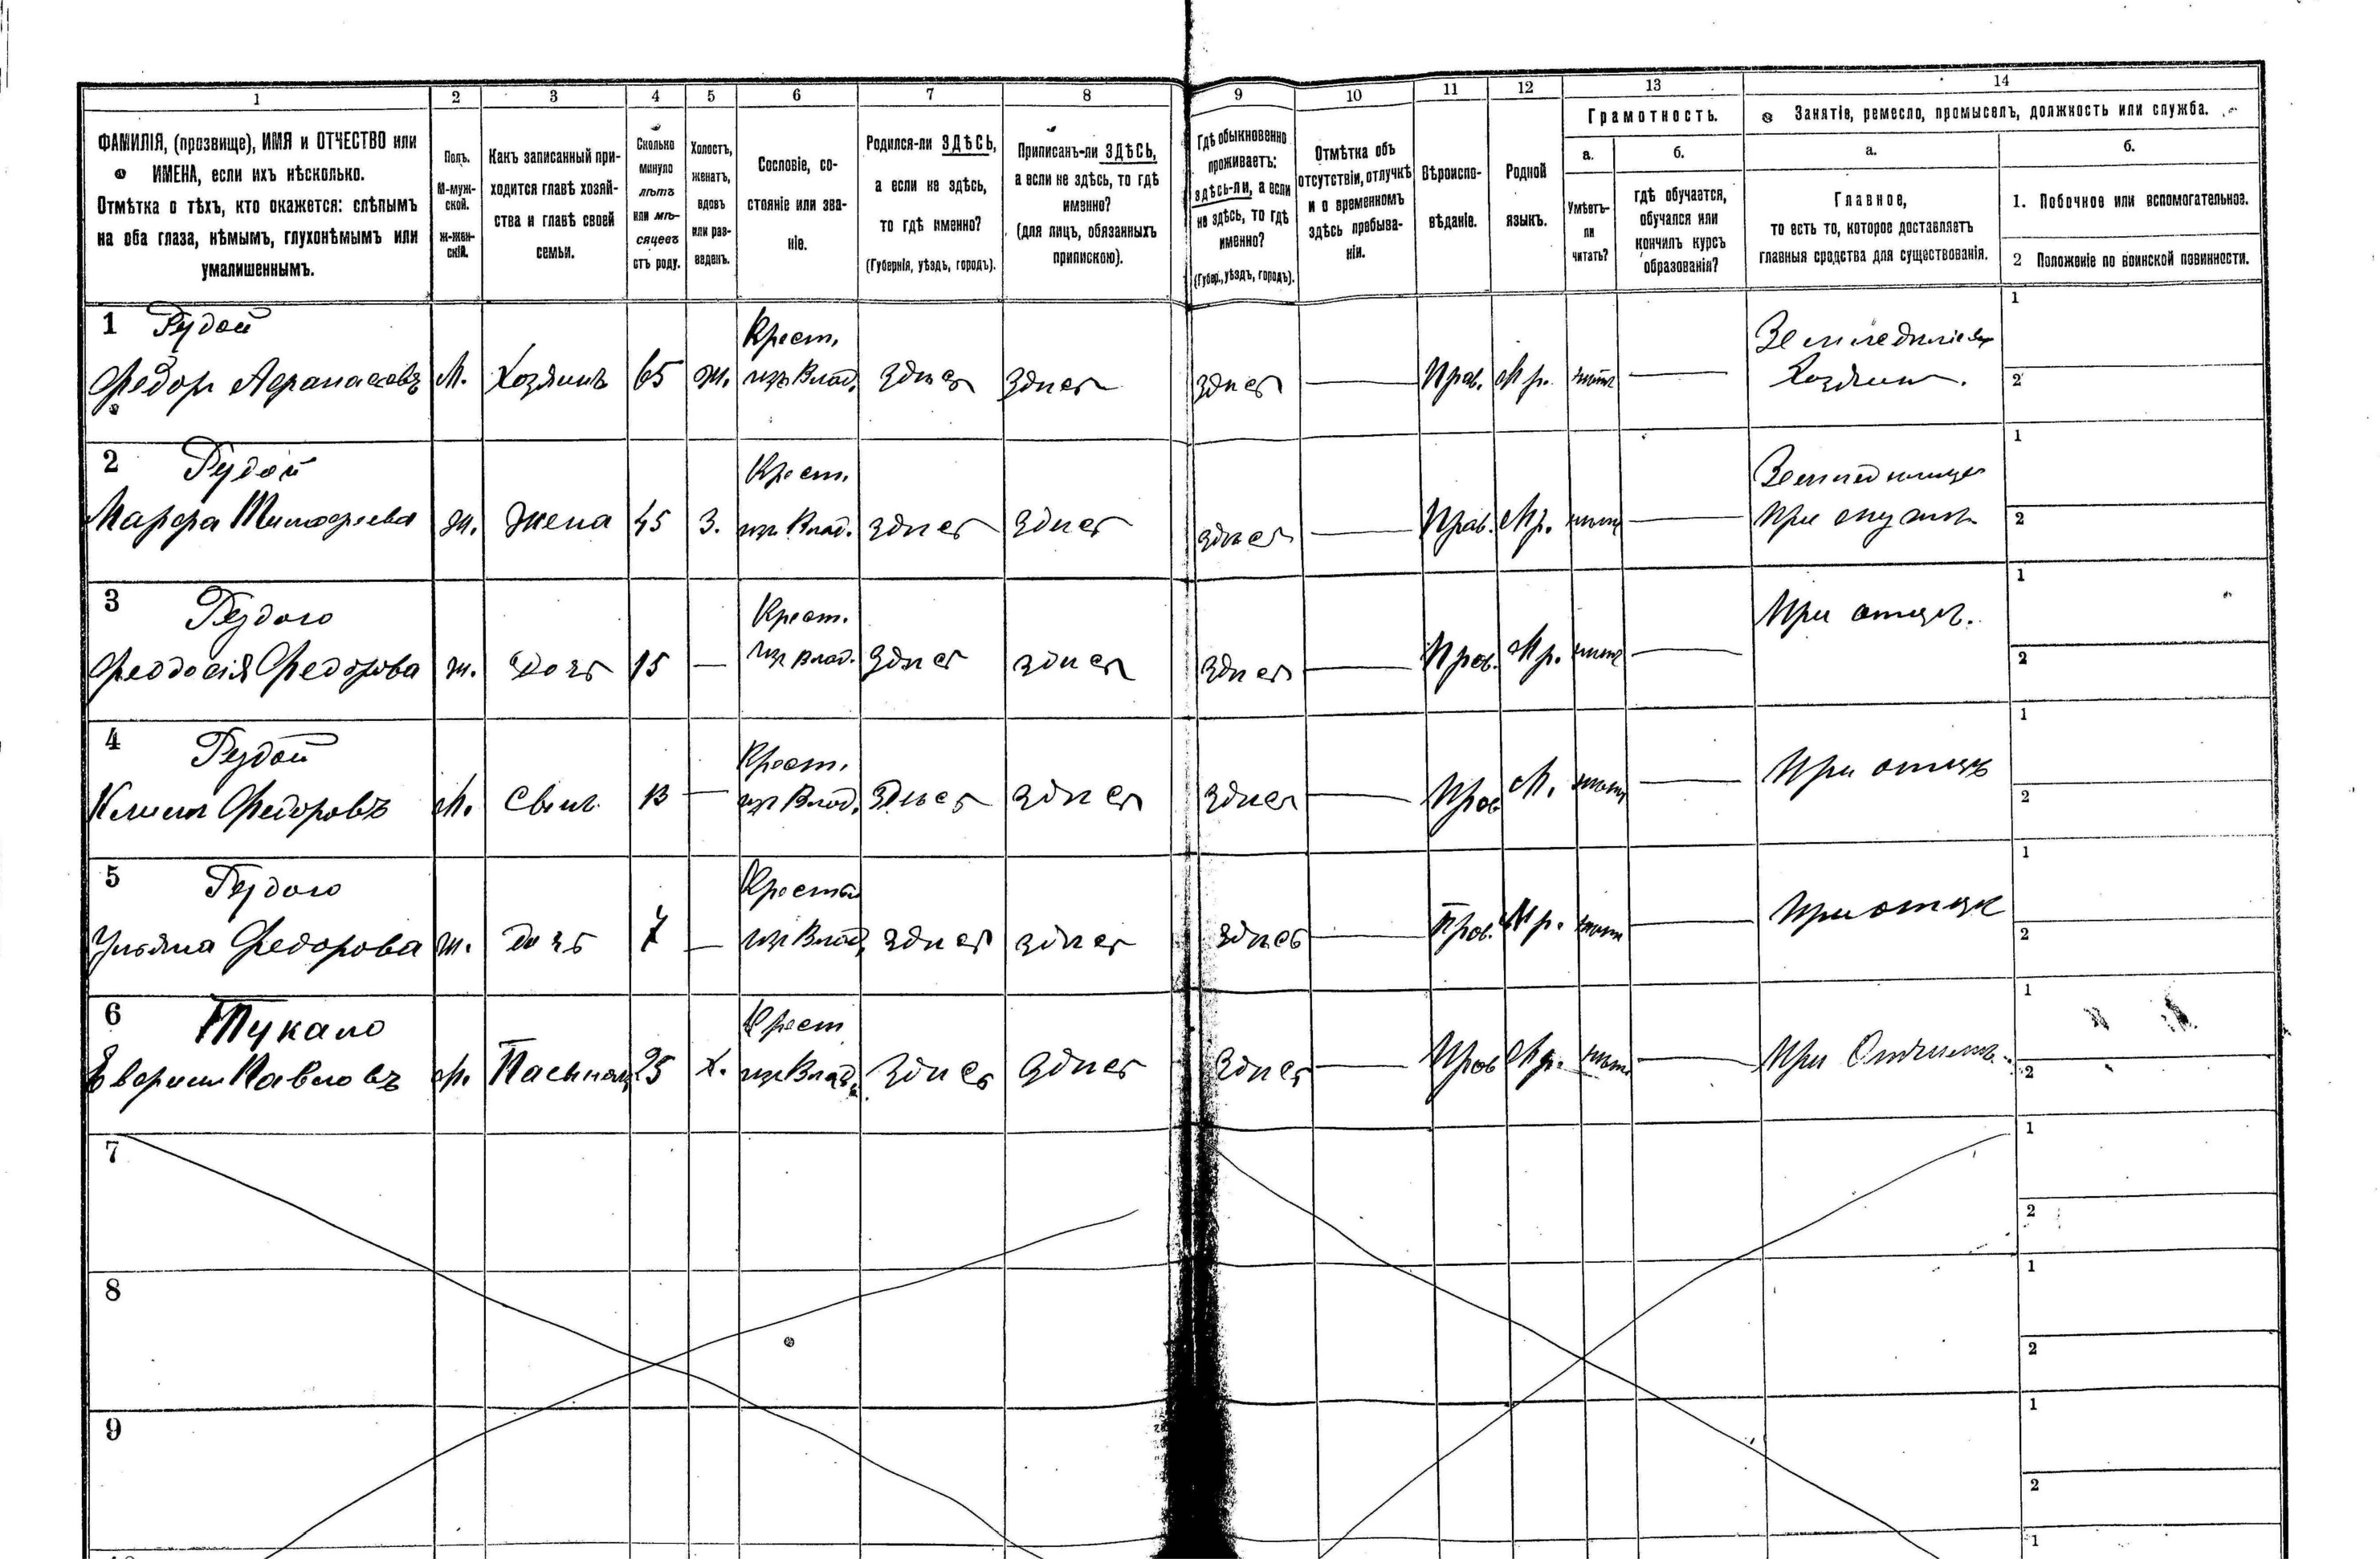 1
2
3
4
5
6
7
8
9
10
11
12
13
14
ФАМИЛІЯ, (прозвище), ИМЯ и ОТЧЕСТВО или
ИМЕНА, если ихъ нѣсколько.
Отмѣтка о тѣхъ, кто окажется: слѣпымъ
на оба глаза, нѣмымъ, глухонѣмымъ или
умалишеннымъ.
Полъ.
М-муж-
ской.
Ж-жен-
скій.
Какъ записанный при-
ходится главѣ хозяй-
ства и главѣ своей
семьи.
Сколько
минуло
лѣтъ
или мѣ-
сяцевъ
отъ роду.
Холостъ,
женатъ,
вдовъ
или раз-
веденъ.
Сословіе, со-
стояніе или зва-
ніе.
Родился-ли ЗДѢСЬ,
а если не здѣсь,
то гдѣ именно?
(Губернія, уѣздъ, городъ).
Приписанъ-ли ЗДѢСЬ,
а если не здѣсь, то гдѣ
именно?
(для лицъ, обязанныхъ
припискою).
Гдѣ обыкновенно
проживаетъ:
здѣсь-ли, а если
не здѣсь, то гдѣ
именно?
(Губер., уѣздъ, городъ).
Отмѣтка объ
отсутствіи, отлучкѣ
и о временномъ
здѣсь пребыва-
ніи.
Вѣроиспо-
вѣданіе.
Родной
языкъ.
Грамотность.
а.
Умѣетъ-
ли
читать?
б.
гдѣ обучается,
обучался или
кончилъ курсъ
образованія?
Занятіе, ремесло, промыселъ, должность или служба.
а.
Главное,
то есть то, которое доставляетъ
главныя средства для существованія.
б.
1. Побочное или вспомогательное.
2 Положеніе по воинской повинности.
1 Рудой
Федоръ Афанасовъ
М.
Хозяинъ
65
ж.
Крест.
изъ Влад.
здѣсь
здѣсь
здѣсь
Прав.
Мр.
нѣтъ
Земледѣліе
Хозяинъ.
1
2
2 Рудой
Марфа Тимофеева
ж.
жена
45
З.
Крест.
изъ Влад.
здѣсь
здѣсь
здѣсь
Прав.
Мр.
нѣтъ
При мужѣ
1
2
3 Рудого
Феодосія Федорова
ж.
дочь
15
Крест.
изъ Влад.
здѣсь
здѣсь
здѣсь
Прав.
Мр.
нѣтъ
При отцѣ.
1
2
4 Рудой
Климъ Федоровъ
М.
Сынъ
13
Крест.
изъ Влад.
здѣсь
здѣсь
здѣсь
Прав
М.
нѣтъ
При отцѣ
1
2
5 Рудого
Ульяна Федорова
ж.
дочь
7
изъ Влад.
здѣсь
здѣсь
здѣсь
Прав.
Мр.
нѣтъ
При отцѣ
1
2
6 Тукало
Евфимъ Павловъ
М.
Пасынокъ
25
Х.
Крест
изъ Влад.
здѣсь
здѣсь
здѣсь
Прав
Мр.
нѣтъ
При Отчимѣ.
1
2
7
1
2
8
1
2
9
1
2
1